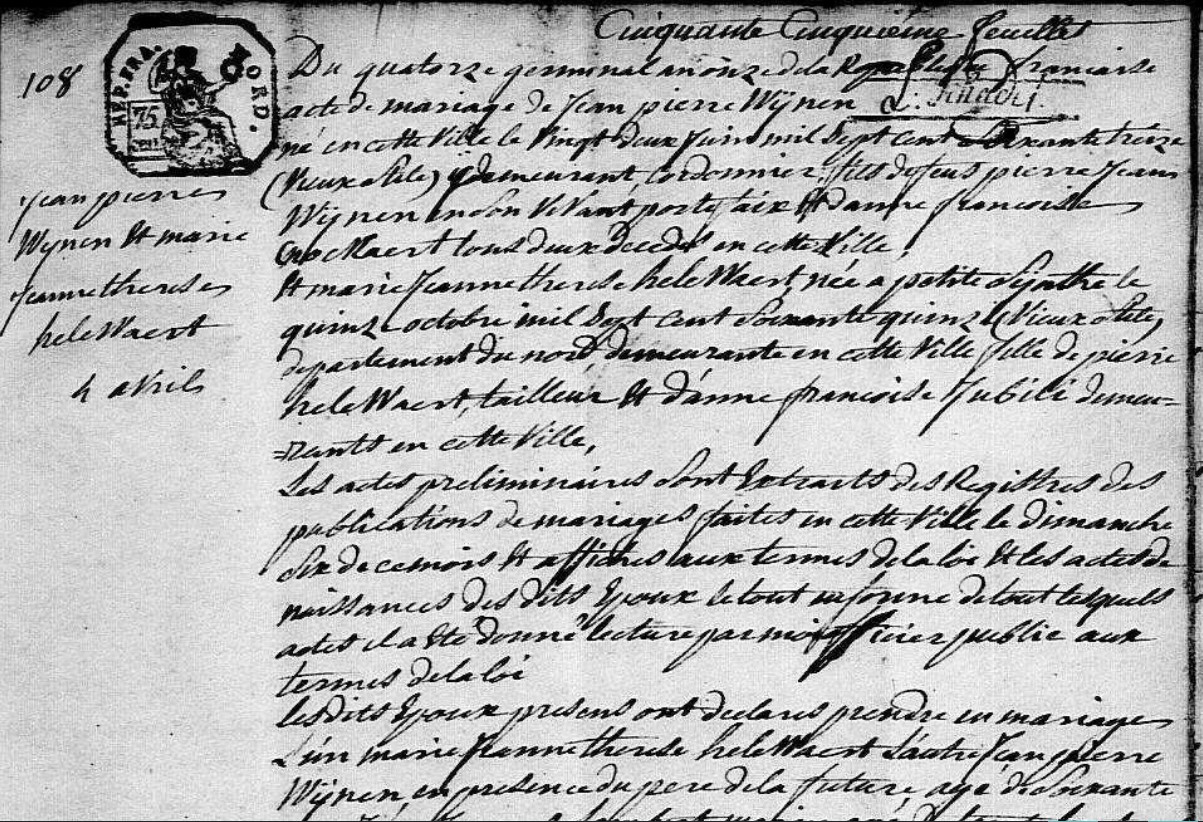 Cinquante Cinquième feuillet
108
REP. FRA.
NORD.
75
Du quatorze germinal an onze de la Republique francaise
acte de mariage de Jean pierre Wÿnen
né en cette Ville le Vingt deux Juin mil Sept cent Soixante treize
(Vieux Stile) ÿ demeurant, Cordonnier, fils de feus pierre Jean
Wÿnen en son Vivant portefaix Et d'anne francoise
tous deux decedés en cette Ville,
Et marie Jeanne therese heleWaert née a petite Sÿnthe le
quinze octobre mil Sept cent Soixante quinze (Vieux Stile)
departement du nord, demeurante en cette Ville fille de pierre
heleWaert, tailleur Et d'anne francoise Jubili demeu=
=rants en cette Ville,
Les actes preliminaires Sont Extraits des Registres des
publications de mariages faites en cette Ville le dimanche
Six de ce mois Et affichés aux termes de la loi Et les actes de
naissances des dits Epoux le tout en forme de tout lesquels
actes il a Eté donné lecture par moi officier public aux
termes de la loi
Les dits Epoux presens ont declarés prendre en mariage
L'un marie Jeanne therese heleWaert L'autre Jean pierre
Wÿnen, en presence du pere de la future agé de Soixante
Jean pierre
Wynen Et marie
Jeanne therese
heleWaert
4 avril